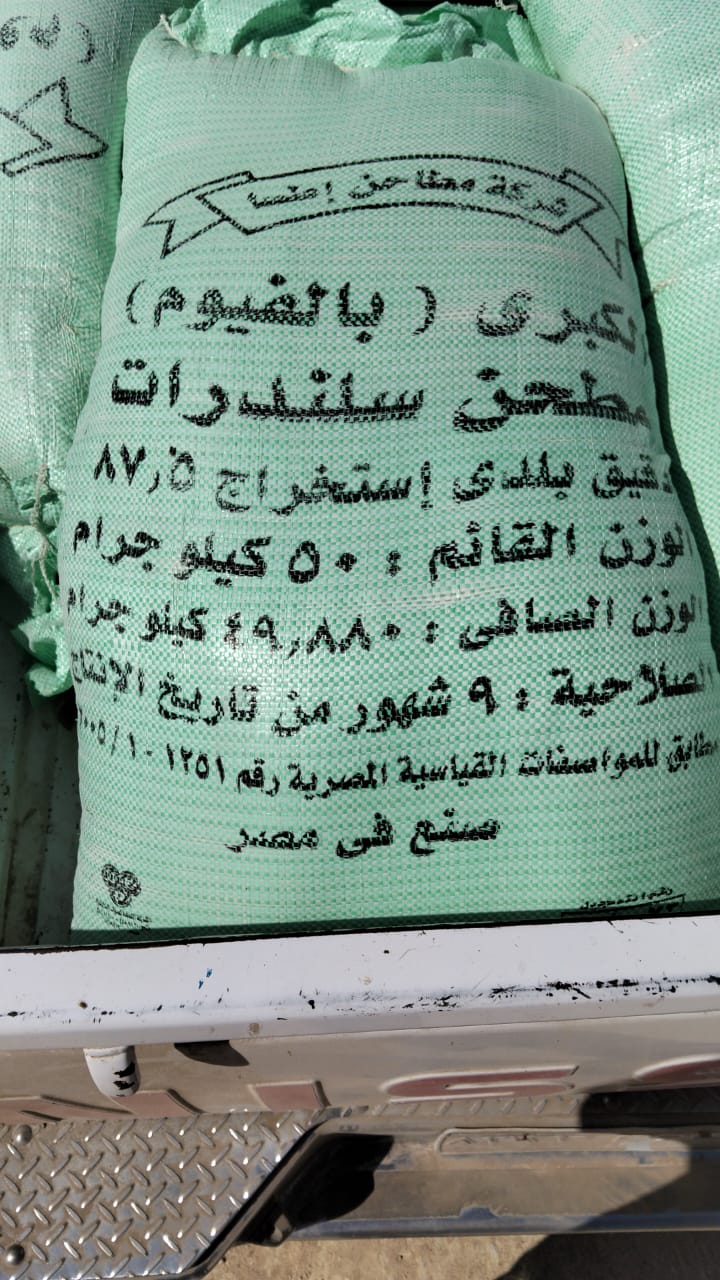 شركة مطاحن إمنسا
الكبرى (بالفيوم)
مطحن سلندرات
دقيق بلدى إستخراج ٨٧٫٥
الوزن القائم : ٥٠ كيلو جرام
الوزن الصافى : ٤٩٫٨٨٠ كيلو جرام
الصلاحية : ٩ شهور من تاريخ الإنتاج
مطابق للمواصفات القياسية المصرية رقم ١٢٥١-١/٢٠٠٥
صنع فى مصر